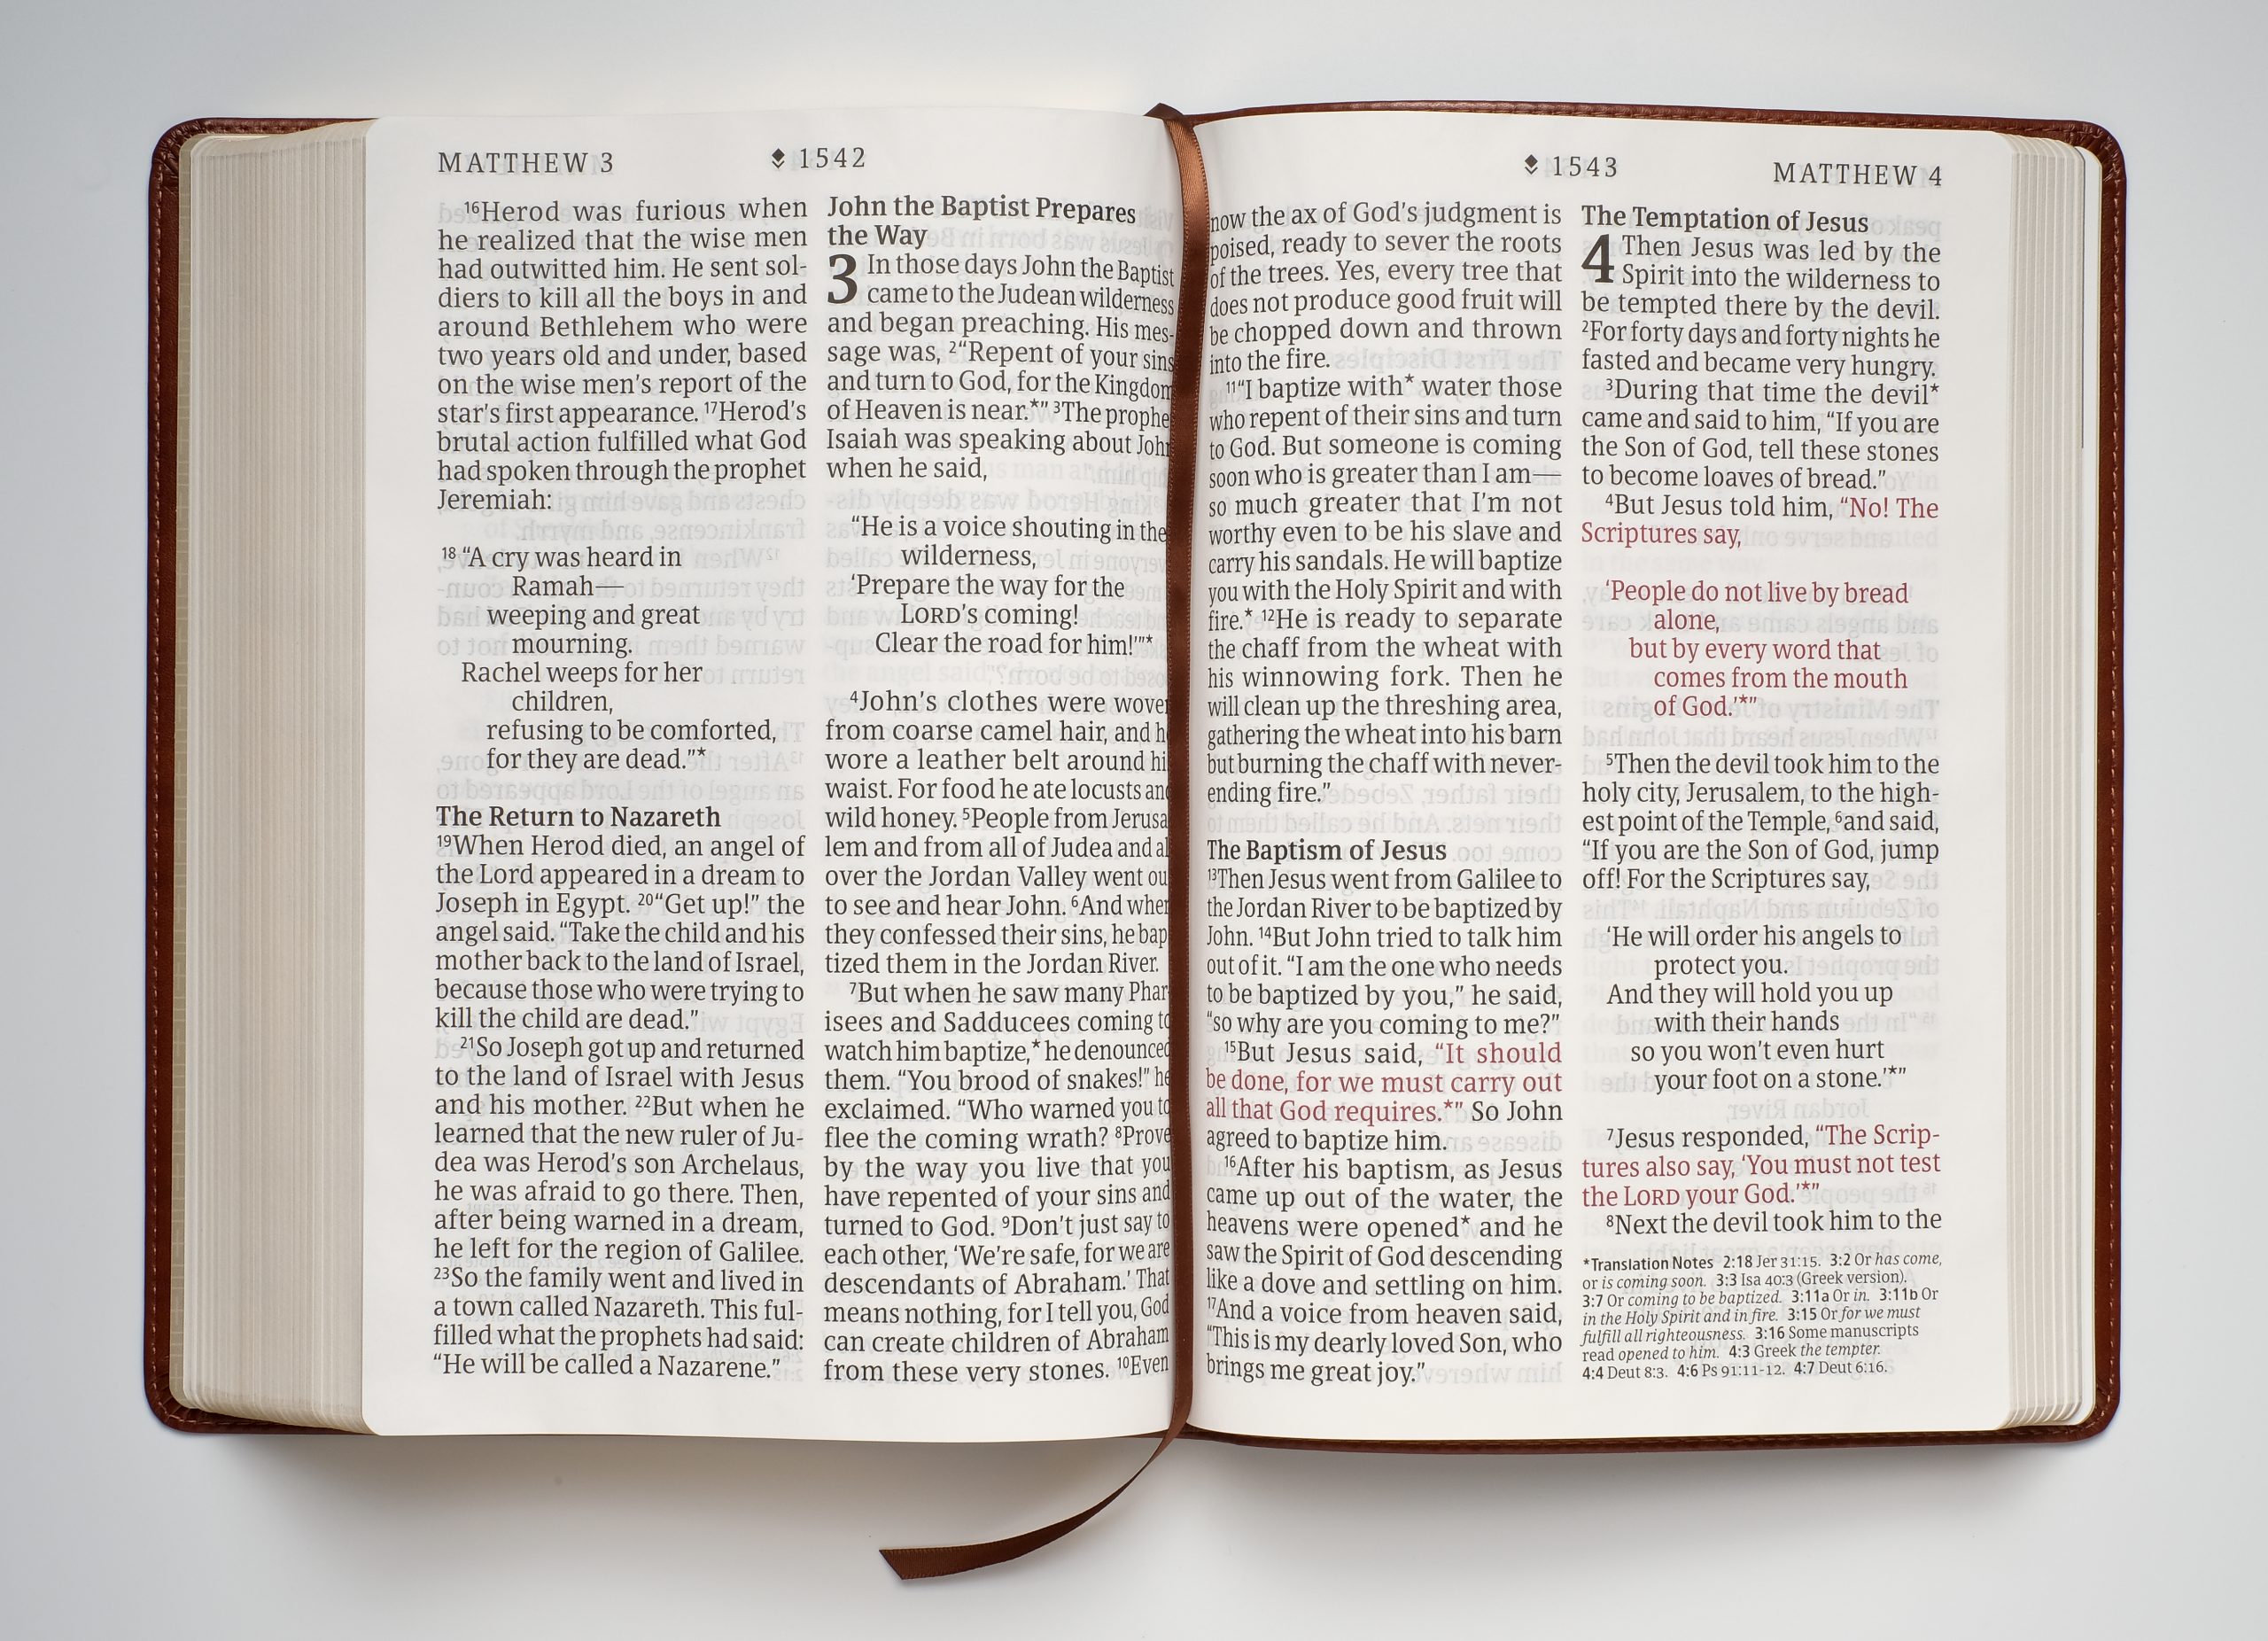 MATTHEW 3
1542
¹⁶Herod was furious when
he realized that the wise men
had outwitted him. He sent sol-
diers to kill all the boys in and
around Bethlehem who were
two years old and under, based
on the wise men's report of the
star's first appearance. ¹⁷Herod's
brutal action fulfilled what God
had spoken through the prophet
Jeremiah:
¹⁸ “A cry was heard in
Ramah—
weeping and great
mourning.
Rachel weeps for her
children,
refusing to be comforted,
for they are dead.”*
The Return to Nazareth
¹⁹When Herod died, an angel of
the Lord appeared in a dream to
Joseph in Egypt. ²⁰“Get up!” the
angel said. “Take the child and his
mother back to the land of Israel,
because those who were trying to
kill the child are dead.”
²¹So Joseph got up and returned
to the land of Israel with Jesus
and his mother. ²²But when he
learned that the new ruler of Ju-
dea was Herod's son Archelaus,
he was afraid to go there. Then,
after being warned in a dream,
he left for the region of Galilee.
²³So the family went and lived in
a town called Nazareth. This ful-
filled what the prophets had said:
“He will be called a Nazarene.”
John the Baptist Prepares
the Way
3 In those days John the Baptist
came to the Judean wilderness
and began preaching. His mes-
sage was, ²“Repent of your sins
and turn to God, for the Kingdom
of Heaven is near.*” ³The prophe
Isaiah was speaking about John
when he said,
“He is a voice shouting in the
wilderness,
‘Prepare the way for the
LORD's coming!
Clear the road for him!’”*
⁴John's clothes were wove
from coarse camel hair, and h
wore a leather belt around hi
waist. For food he ate locusts and
wild honey. ⁵People from Jerusa
lem and from all of Judea and al
over the Jordan Valley went ou
to see and hear John. ⁶And when
they confessed their sins, he bap
tized them in the Jordan River.
⁷But when he saw many Phar
isees and Sadducees coming to
watch him baptize,* he denounced
them. “You brood of snakes!” he
exclaimed. “Who warned you to
flee the coming wrath? ⁸Prove
by the way you live that you
have repented of your sins and
turned to God. ⁹Don't just say to
each other, ‘We're safe, for we are
descendants of Abraham.’ That
means nothing, for I tell you, God
can create children of Abraham
from these very stones. ¹⁰Even
1543
MATTHEW 4
now the ax of God's judgment is
poised, ready to sever the roots
of the trees. Yes, every tree that
does not produce good fruit will
be chopped down and thrown
into the fire.
¹¹“I baptize with* water those
who repent of their sins and turn
to God. But someone is coming
soon who is greater than I am—
so much greater that I'm not
worthy even to be his slave and
carry his sandals. He will baptize
you with the Holy Spirit and with
fire.* ¹²He is ready to separate
the chaff from the wheat with
his winnowing fork. Then he
will clean up the threshing area,
gathering the wheat into his barn
but burning the chaff with never-
ending fire.”
The Baptism of Jesus
¹³Then Jesus went from Galilee to
the Jordan River to be baptized by
John. ¹⁴But John tried to talk him
out of it. “I am the one who needs
to be baptized by you,” he said,
“so why are you coming to me?”
¹⁵But Jesus said, “It should
be done, for we must carry out
all that God requires.*” So John
agreed to baptize him.
¹⁶After his baptism, as Jesus
came up out of the water, the
heavens were opened* and he
saw the Spirit of God descending
like a dove and settling on him.
¹⁷And a voice from heaven said,
“This is my dearly loved Son, who
brings me great joy.”
The Temptation of Jesus
4 Then Jesus was led by the
Spirit into the wilderness to
be tempted there by the devil.
²For forty days and forty nights he
fasted and became very hungry.
³During that time the devil*
came and said to him, “If you are
the Son of God, tell these stones
to become loaves of bread.”
⁴But Jesus told him, “No! The
Scriptures say,
‘People do not live by bread
alone,
but by every word that
comes from the mouth
of God.’*”
⁵Then the devil took him to the
holy city, Jerusalem, to the high-
est point of the Temple, ⁶and said,
“If you are the Son of God, jump
off! For the Scriptures say,
‘He will order his angels to
protect you.
And they will hold you up
with their hands
so you won't even hurt
your foot on a stone.’*”
⁷Jesus responded, “The Scrip-
tures also say, ‘You must not test
the LORD your God.’*”
⁸Next the devil took him to the
*Translation Notes 2:18 Jer 31:15. 3:2 Or has come,
or is coming soon. 3:3 Isa 40:3 (Greek version).
3:7 Or coming to be baptized. 3:11a Or in. 3:11b Or
in the Holy Spirit and in fire. 3:15 Or for we must
fulfill all righteousness. 3:16 Some manuscripts
read opened to him. 4:3 Greek the tempter.
4:4 Deut 8:3. 4:6 Ps 91:11-12. 4:7 Deut 6:16.